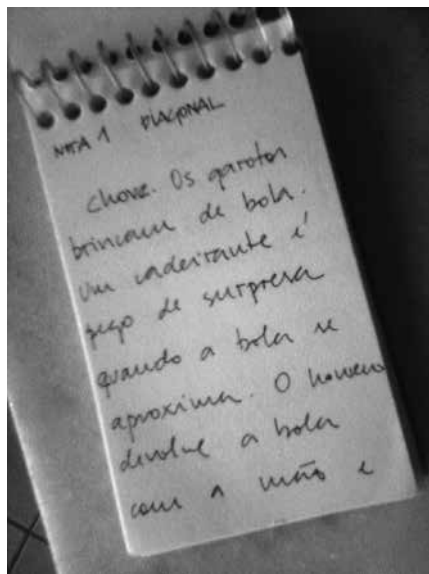 NOTA 1 DIAGONAL
Chove. Os garotos
brincam de bola.
Um cadeirante é
pego de surpresa
quando a bola se
aproxima. O homem
devolve a bola
com a mão e